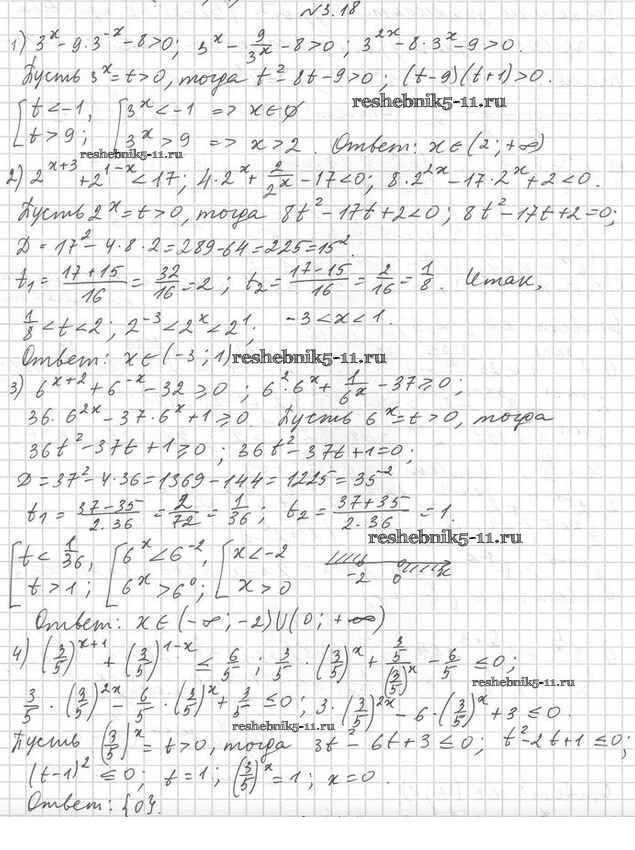 №3.18
1) 3^x - 9·3^-x - 8>0; 3^x - 9/3^x - 8>0; 3^2x - 8·3^x - 9>0.
Пусть 3^x = t>0, тогда t^2 - 8t - 9>0; (t-9)(t+1)>0.
reshebnik5-11.ru
[ t<-1, [ 3^x<-1 => x∈∅
[ t>9; [ 3^x>9 => x>2. Ответ: x∈(2;+∞)
reshebnik5-11.ru
2) 2^x+3 + 2^1-x < 17; 4·2^x + 2/2^x - 17<0; 8·2^2x - 17·2^x + 2<0.
Пусть 2^x = t>0, тогда 8t^2 - 17t + 2<0; 8t^2 - 17t + 2=0;
D = 17^2 - 4·8·2 = 289 - 64 = 225 = 15^2.
t1 = (17+15)/16 = 32/16 = 2; t2 = (17-15)/16 = 2/16 = 1/8. Итак,
1/8 < t < 2; 2^-3 < 2^x < 2^1; -3 < x < 1.
Ответ: x∈(-3;1) reshebnik5-11.ru
3) 6^x+2 + 6^-x - 32 ≥ 0; 6^2·6^x + 1/6^x - 37 ≥ 0;
36·6^2x - 37·6^x + 1 ≥ 0 Пусть 6^x = t>0, тогда
36t^2 - 37t + 1 ≥ 0; 36t^2 - 37t + 1 = 0;
D = 37^2 - 4·36 = 1369 - 144 = 1225 = 35^2
t1 = (37-35)/(2·36) = 2/72 = 1/36; t2 = (37+35)/(2·36) = 1.
reshebnik5-11.ru
[ t < 1/36, [ 6^x < 6^-2, [ x < -2
[ t > 1; [ 6^x > 6^0; [ x > 0 -2 0 x
Ответ: x∈(-∞;-2)∪(0;+∞)
4) (3/5)^x+1 + (3/5)^1-x ≤ 6/5; 3/5·(3/5)^x + (3/5)/(3/5)^x - 6/5 ≤ 0;
reshebnik5-11.ru
3/5·(3/5)^2x - 6/5·(3/5)^x + 3/5 ≤ 0; 3·(3/5)^2x - 6·(3/5)^x + 3 ≤ 0.
reshebnik5-11.ru
Пусть (3/5)^x = t>0, тогда 3t^2 - 6t + 3 ≤ 0; t^2 - 2t + 1 ≤ 0;
(t-1)^2 ≤ 0; t=1; (3/5)^x = 1; x=0.
Ответ: {0}.